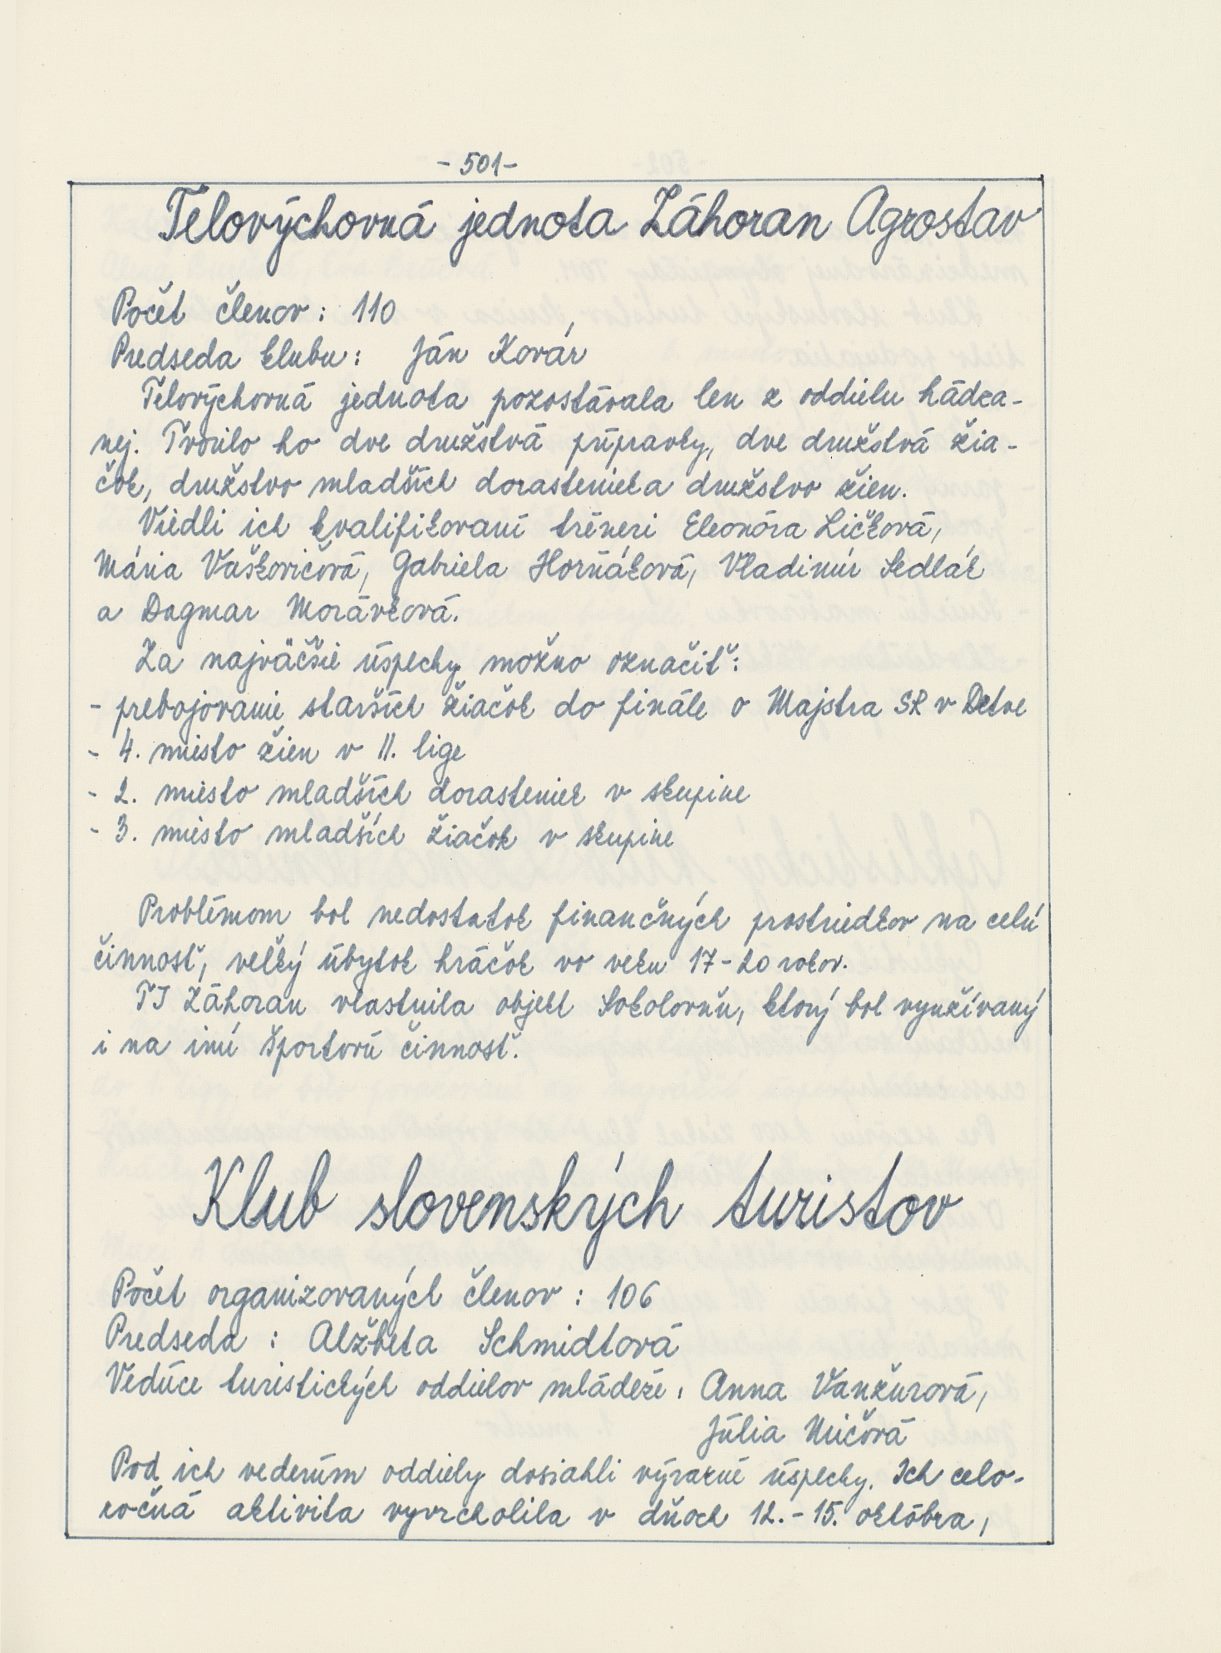 - 501 -
Telovýchovná jednota Záhoran Agrostav
Počet členov : 110
Predseda klubu : Ján Kovár
Telovýchovná jednota pozostávala len z oddielu hádza-
nej. Tvorilo ho dve družstvá prípravky, dve družstvá žia-
čok, družstvo mladších dorasteniek a družstvo žien.
Viedli ich kvalifikovaní tréneri Eleonóra Ličková,
Mária Vaškovičová, Gabriela Horňáková, Vladimír Sedlák
a Dagmar Morávková.
Za najväčšie úspechy možno označiť:
- prebojovanie starších žiačok do finále o Majstra SR v Detve
- 4. miesto žien v II. lige
- 2. miesto mladších dorasteniek v skupine
- 3. miesto mladších žiačok v skupine
Problémom bol nedostatok finančných prostriedkov na celú
činnosť, veľký úbytok hráčok vo veku 17-20 rokov.
TJ Záhoran vlastnila objekt Sokolovňu, ktorý bol využívaný
i na inú športovú činnosť.
Klub slovenských turistov
Počet organizovaných členov : 106
Predseda : Alžbeta Schmidtová
Vedúce turistických oddielov mládeže : Anna Vanžurová,
Júlia
Pod ich vedením oddiely dosiahli výrazné úspechy. Ich celo-
ročná aktivita vyvrcholila v dňoch 12.-15. októbra,